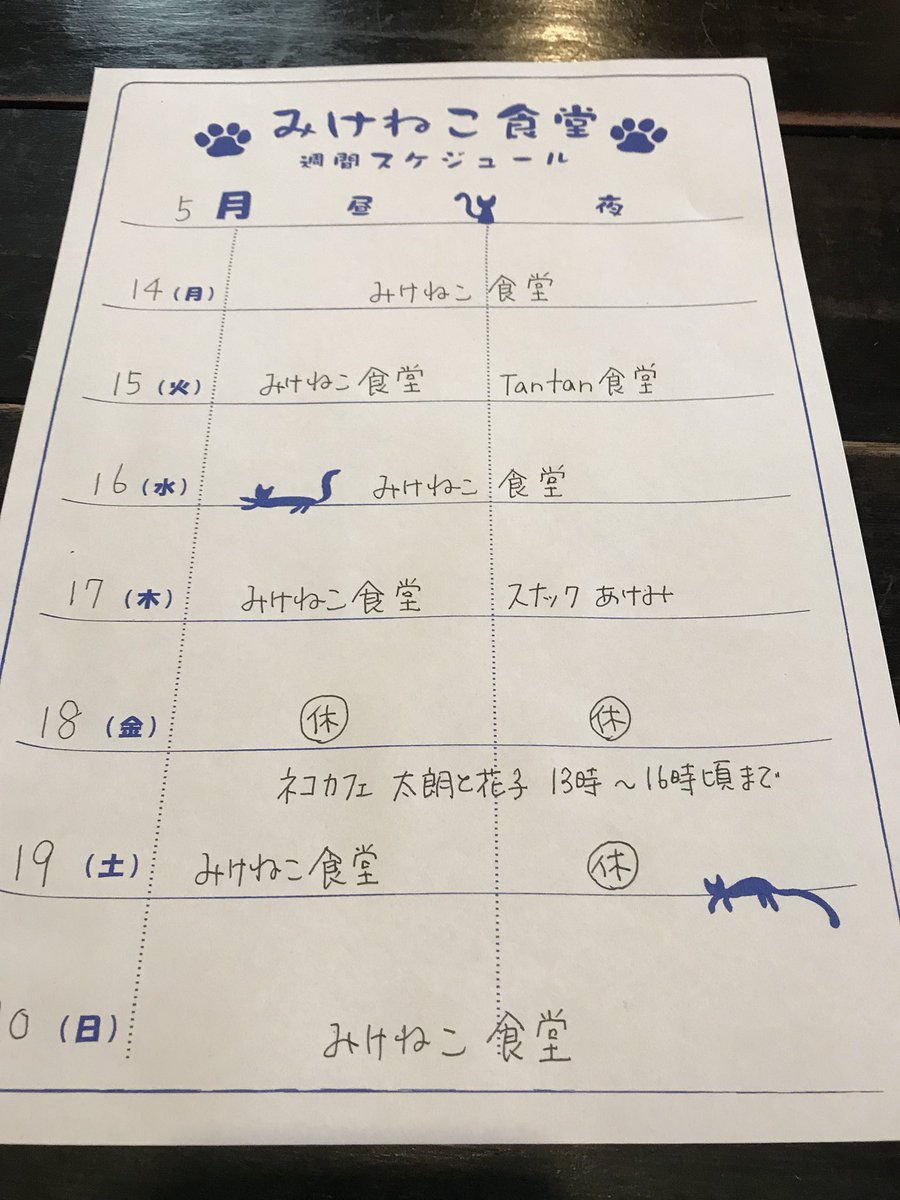 みけねこ食堂
週間スケジュール
5月 昼 夜
14(月) みけねこ 食堂
15(火) みけねこ食堂 Tantan食堂
16(水) みけねこ 食堂
17(木) みけねこ食堂 スナック あけみ
18(金) 休 休
ネコカフェ 太朗と花子 13時~16時頃まで
19(土) みけねこ食堂 休
0(日) みけねこ 食堂